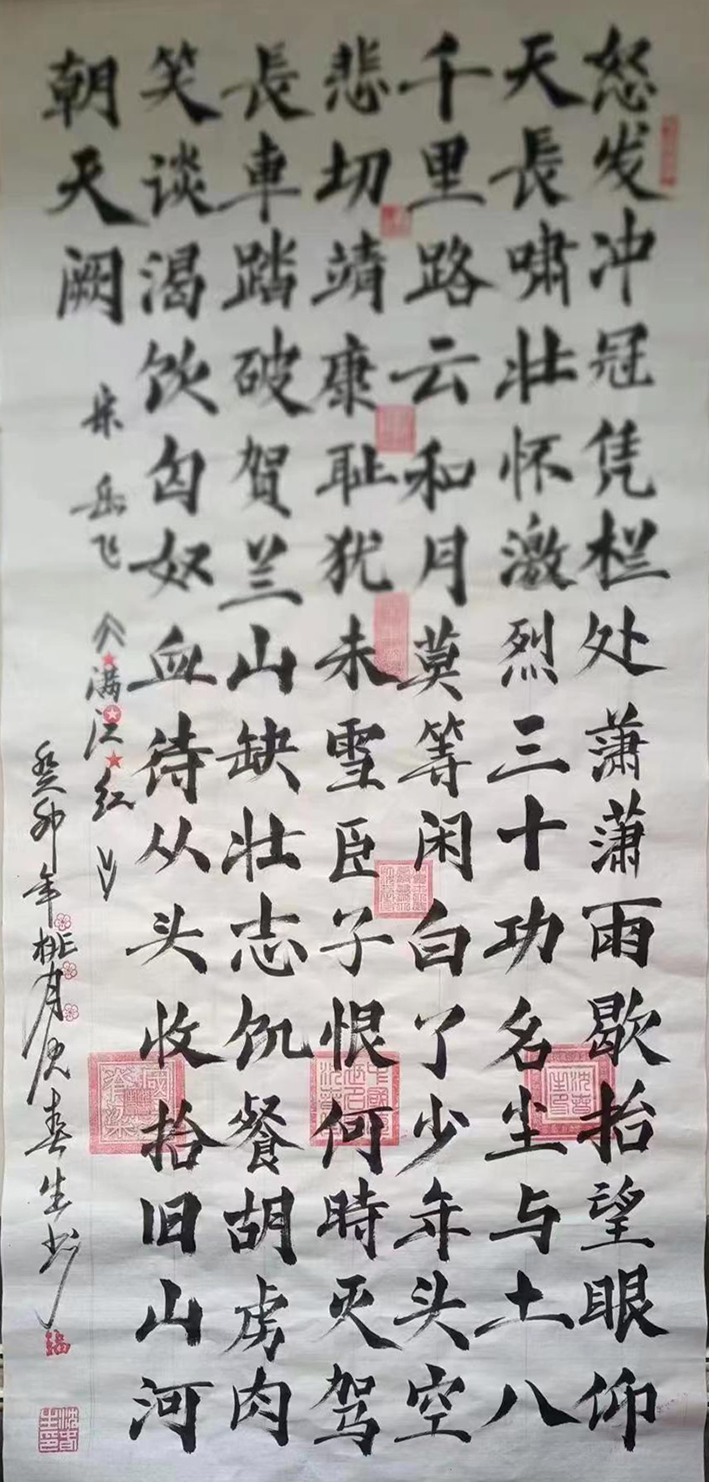 怒发冲冠凭栏处潇潇雨歇抬望眼仰
天長啸壮怀激烈三十功名尘与土八
千里路云和月莫等闲白了少年头空
悲切靖康耻犹未雪臣子恨何時灭驾
長車踏破賀兰山缺壮志饥餐胡虏肉
笑谈渴饮匈奴血待从头收拾旧山河
朝天阙
宋岳飞《满江红》
癸卯年桃月沈春生书
沈春生印